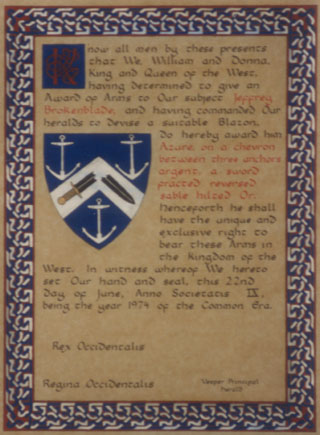 Know all men by these presents
that We, William and Donna,
King and Queen of the West,
having determined to give an
Award of Arms to Our subject Jeffrey
Brokenblade, and having commanded Our
heralds to devise a suitable Blazon,
Do hereby award him
Azure, on a chevron
between three anchors
argent, a sword
fracted reversed
sable hilted Or.
Henceforth he shall
have the unique and
exclusive right to
bear these Arms in
the Kingdom of the
West. In witness whereof We hereto
set Our hand and seal, this 22nd
Day of June, Anno Societatis IX,
being the year 1974 of the Common Era.
Rex Occidentalis
Regina Occidentalis
Vesper Principal
Herald